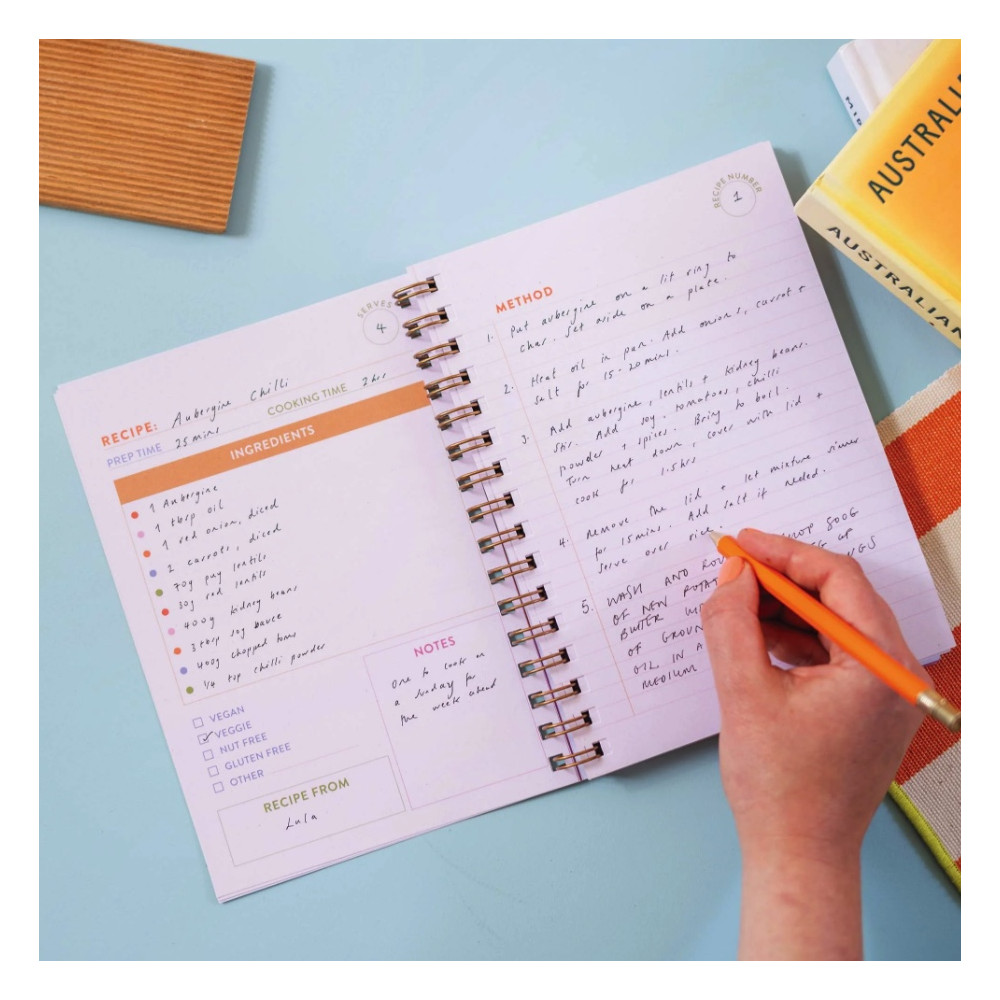 SERVES
4
RECIPE: Aubergine Chilli
PREP TIME 25 mins COOKING TIME 2hrs
INGREDIENTS
1 Aubergine
1 tbsp oil
1 red onion, diced
2 carrots, diced
70g puy lentils
30g red lentils
400g kidney beans
3 tbsp soy sauce
400g chopped toms
1/4 tsp chilli powder
VEGAN
VEGGIE
NUT FREE
GLUTEN FREE
OTHER
NOTES
One to cook on
a Sunday for
the week ahead
RECIPE FROM
Lula
RECIPE NUMBER
1
METHOD
1. Put aubergine on a lit ring to
char. Set aside on a plate.
2. Heat oil in pan. Add onions, carrot +
salt for 15-20 mins.
3. Add aubergine, lentils + kidney beans.
Stir. Add soy, tomatoes, chilli
powder + spices. Bring to boil.
Turn heat down, cover with lid +
cook for 1.5hrs
4. Remove the lid + let mixture simmer
for 15 mins. Add salt if needed.
Serve over rice.
5. WASH AND 500G
OF NEW UP
BUTTER
OF
OIL IN A
MEDIUM
AUSTRALI
AUSTRALIAN